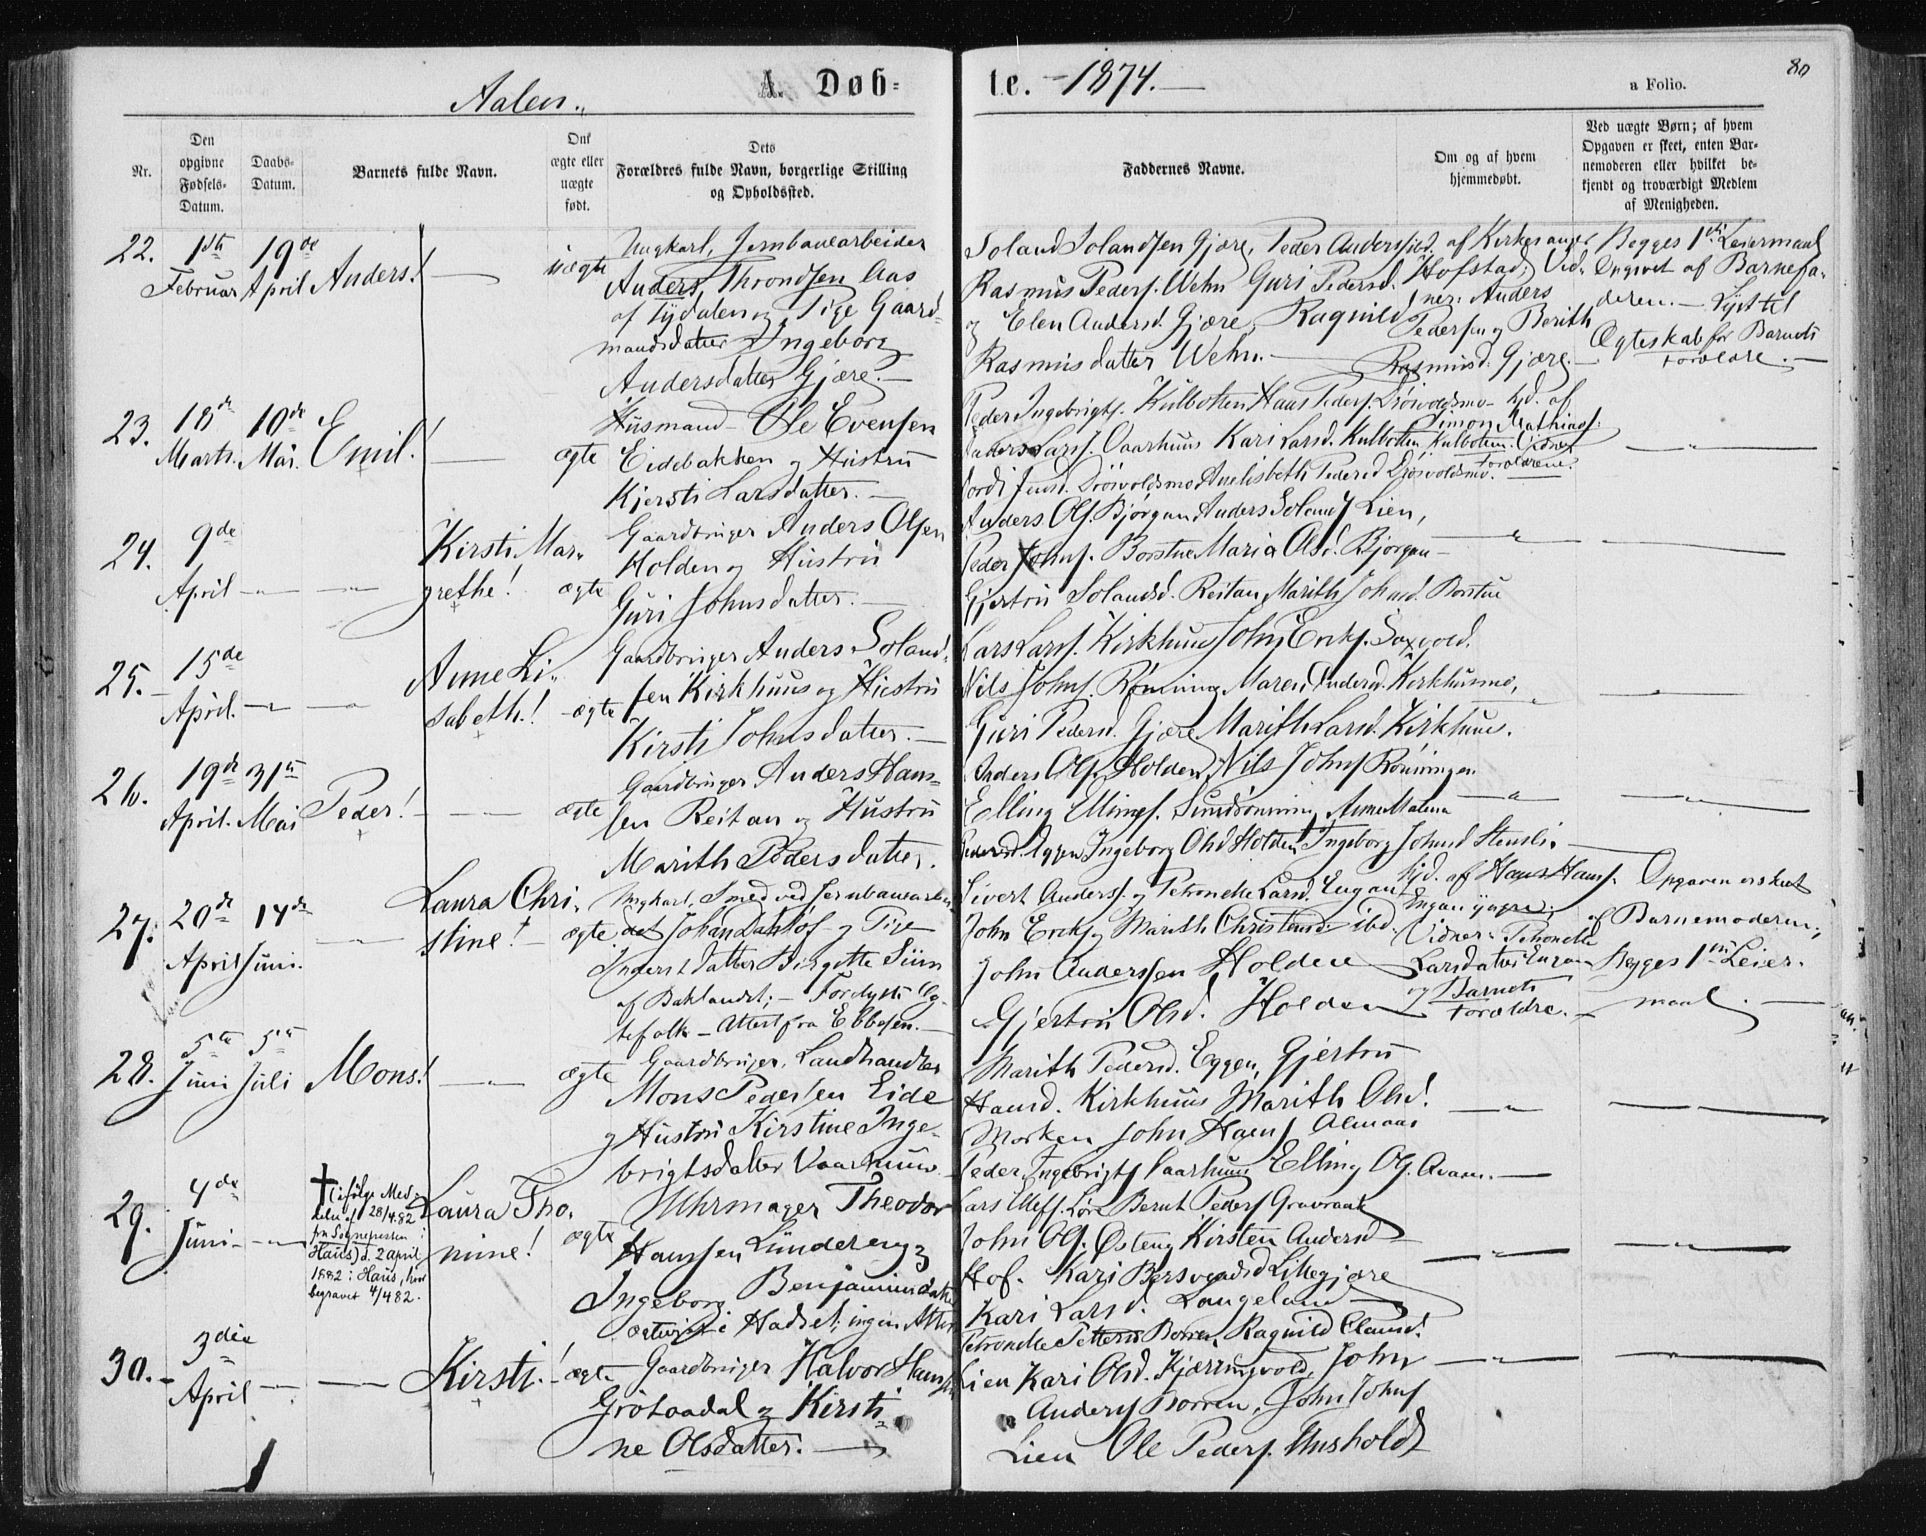 Aalen.
A. Døb-
te. - 1874. -
80
a Folio.
Nr.
Den opgivne Fødsels-Datum.
Daabs-Datum.
Barnets fulde Navn.
Om ægte eller uægte født.
Dets Forældres fulde Navn, borgerlige Stilling og Opholdssted.
Faddernes Navne.
Om og af hvem hjemmedøbt.
Ved uægte Børn; af hvem Opgaven er skeet, enten Barnemoderen eller hvilket bekjendt og troværdigt Medlem af Menigheden.
22. 1ste Februar 19de April Anders! uægte
Ungkarl, Jernbanearbeider
Anders Throndsen Aas
af Tydalen og Pige Gaard-
mandsdatter Ingeborg
Andersdatter Gjære. -
Soland Solandsen Gjære, Peder Anders. ibd.
Rasmus Peders. Wehn Guri Pedersd.
og Elen Andersd. Gjære, Ragnild
Rasmusdatter Wehn. -
af Kirkesanger
Hofstad; Vid-
ner: Anders
Pedersen og Berith
Rasmusd. Gjære. -
Begges 1ste Leiermaal
Opgivet af Barnefa-
deren. - Lyst til
Ægteskab for Barnets
Forældre. -
23. 18de Marts. 10de Mai. Emil! ægte
Husmand Ole Evensen
Eidebakken og Hustru
Kjersti Larsdatter. -
Peder Ingebrigts. Kulbotten Hans Peders. Drøivoldsmo
Anders Lars. Vaarhuus Kari Larsd. Kulbotten
Jensd. Drøivoldsmo Anelisbeth Pedersd Drøivoldsmo.
hjd. af
Simon Mathias.
Kulbotten. Vidner
Forældrene.
24. 9de April Kirsti Mar-
grethe! ægte
Gaardbruger Anders Olsen
Holden og Hustru
Guri Johnsdatter. -
Anders Ols. Bjørgan Anders Solands Lien,
Peder Johns. Borstue Maria Olsd. Bjørgan
Gjertru Solandsd. Reitan, Marith Johnsd. Borstue
25. 15de April. Anne Li-
sabeth! ægte
Gaardbruger Anders Soland-
sen Kirkhuus og Hustru
Kirsti Johnsdatter. -
Lars Lars. Kirkhuus John Eriks. Saxvold.
Nils Johns. Rønning Maren Andersd. Kirkhusmo,
Guri Pedersd. Gjære Marith Larsd. Kirkhuus.
26. 19de April. 31te Mai Peder! ægte
Gaardbruger Anders Han-
sen Reitan og Hustru
Marith Pedersdatter.
Anders Ols. Holden, Nils Johns Rønningen
Elling Ellings. Sundrønning Anne Malena
Pedersd. Eggen Ingeborg Olsd Holden Ingeborg Johnsd Stensli
27. 20de April 14de Juni. Laura Chri-
stine! ægte
Ungkarl, Smed ved Jernbanearbei-
det Johan Dahlof og Pige
datter Birgitte Siim
af Baklandet; - Forlyste Æg-
tefolk - Attest fra Ebbesen. -
Sivert Anders. og Petronelle Larsd. Engan
John Eriks. og Marith Christensd. ibd.
John Anderssen Holden
Gjertru Olsd. Holden
hjd. af Hans Hans.
Engan yngre;
Vidner: Petronelle
Larsdatter Engan
og Barnets
Forældre. -
Opgaven er skeet
af Barnemoderen;
Begges 1ste Leier-
maal. -
28. 5te Juni 5te Juli Mons! ægte
Gaardbruger, Landhandler
Mons Pedersen Eide
og Hustru Kirstine Inge-
brigtsdatter Vaarhuus
Marith Pedersd. Eggen, Gjertru
Hansd. Kirkhuus Marith Olsd.
Morken John Hans Almaas
Peder Ingebrigts Vaarhuus Elling Ols.
29. 4de Juni
† (ifølge Med-
delse af 28/4.82
fra Sognepresten i
Haus) d. 2 april
1882 i Haus, hvor
begravet 4/4 82.
Laura Tho-
mine! ægte
Uhrmager Theodor
Hanssen Lundereng
Ingeborg Benjaminsdatter
i Hadsel; ingen Attest
Bernt Peders Gravraak
John Ols. Østeng Kirsten Andersd
Hof. Kari Bersvendsd Littlegjære
Kari Larsd. Langeland
30. 3die April Kirsti! ægte
Gaardbruger Halvor Hansen
Grøtaadal og Kirsti-
ne Olsdatter. -
Petronelle Pettersd Borren, Ragnild Clausd.
Lien Kari Olsd. Kjærringvold, John
Anders Borren, John Johns
Lien Ole Peders. Unsholdt